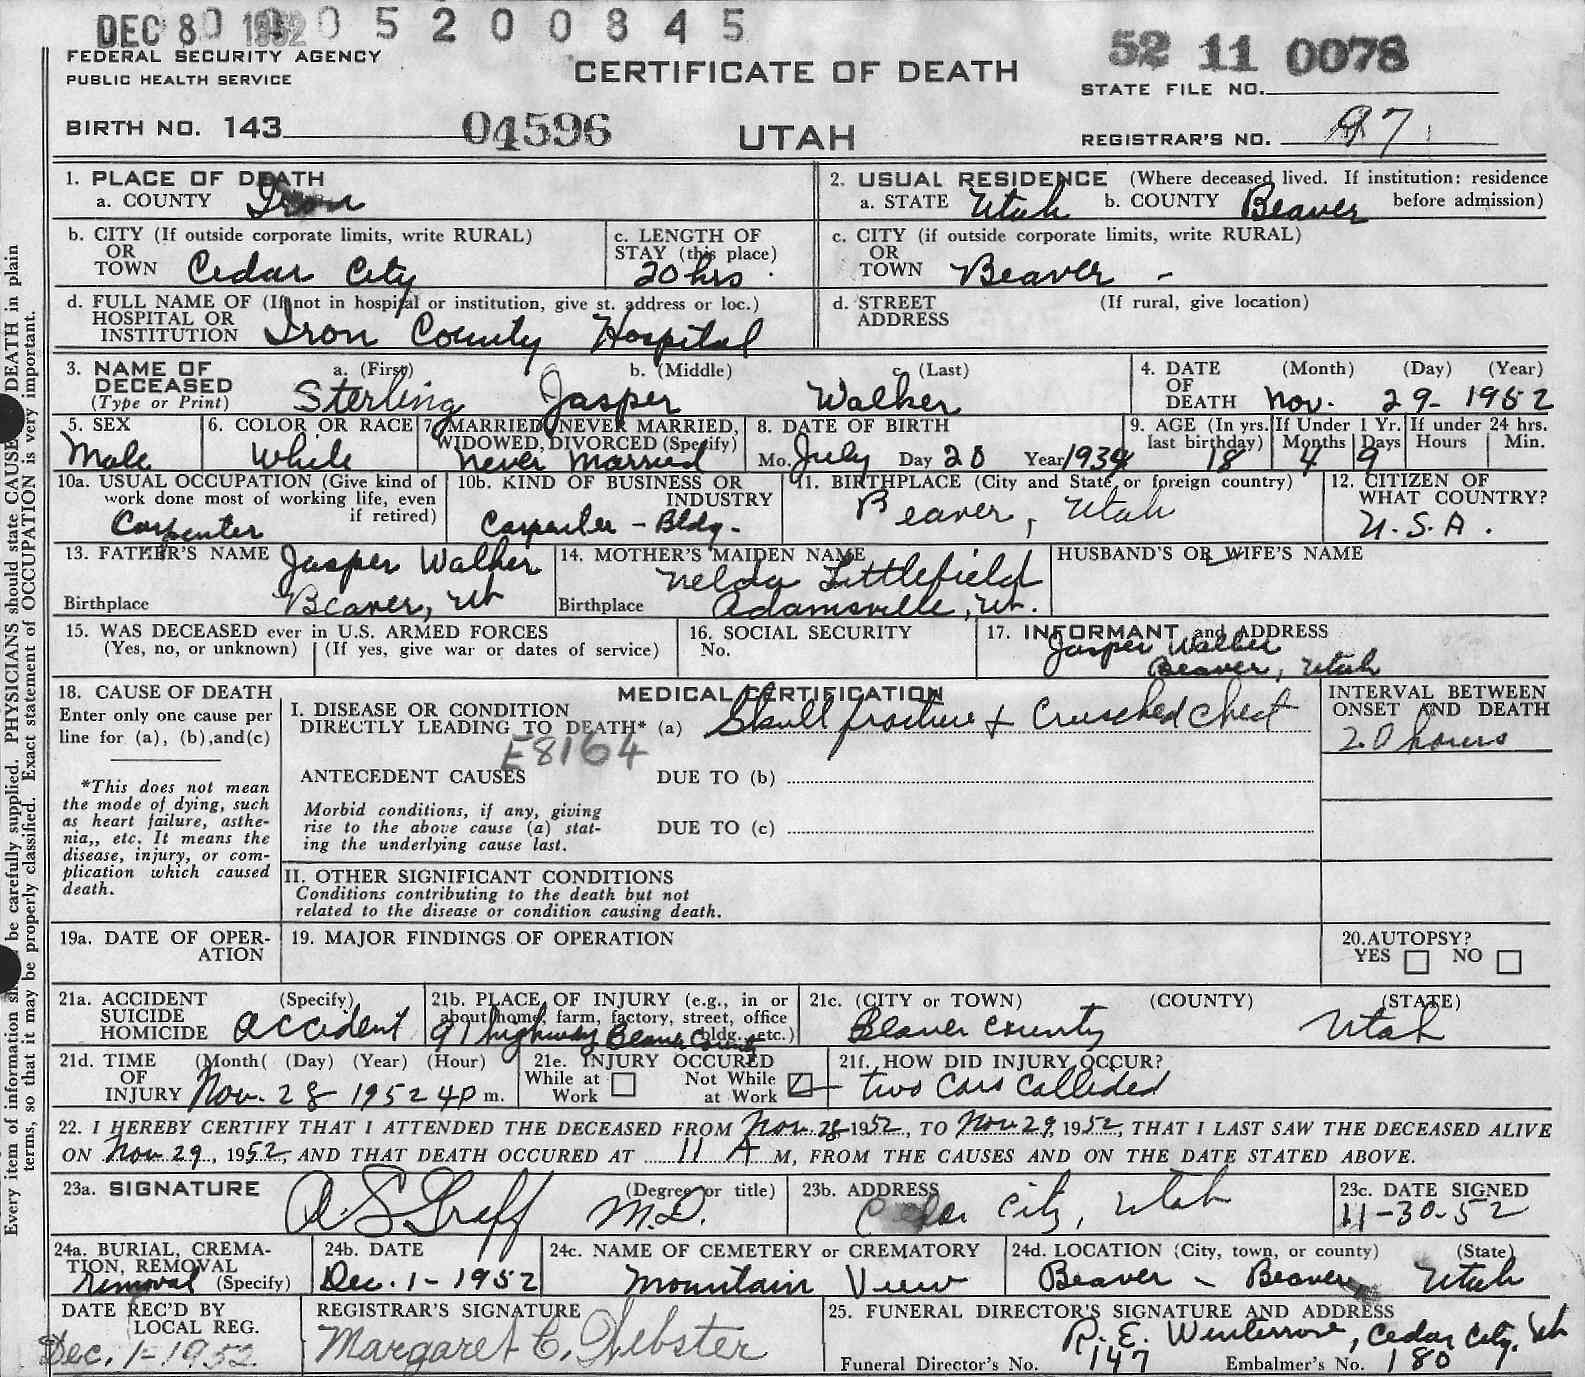 DEC 8 1952 0 5 2 0 0 8 4 5
52 11 0078
FEDERAL SECURITY AGENCY
PUBLIC HEALTH SERVICE
CERTIFICATE OF DEATH
STATE FILE NO.
BIRTH NO. 143 04596
UTAH
REGISTRAR'S NO. 97
1. PLACE OF DEATH
a. COUNTY Iron
2. USUAL RESIDENCE (Where deceased lived. If institution: residence before admission)
a. STATE Utah b. COUNTY Beaver
b. CITY (If outside corporate limits, write RURAL)
OR
TOWN Cedar City
c. LENGTH OF
STAY (this place)
20 hrs.
c. CITY (if outside corporate limits, write RURAL)
OR
TOWN Beaver -
d. FULL NAME OF (If not in hospital or institution, give st. address or loc.)
HOSPITAL OR
INSTITUTION Iron County Hospital
d. STREET (If rural, give location)
ADDRESS
3. NAME OF
DECEASED
(Type or Print)
a. (First) b. (Middle) c. (Last)
Sterling Jasper Walker
4. DATE (Month) (Day) (Year)
OF
DEATH Nov. 29- 1952
5. SEX
Male
6. COLOR OR RACE
White
7. MARRIED, NEVER MARRIED,
WIDOWED, DIVORCED (Specify)
Never Married
8. DATE OF BIRTH
Mo. July Day 20 Year 1934
9. AGE (In yrs.
last birthday)
18
If Under 1 Yr.
Months Days
4 9
If under 24 hrs.
Hours Min.
10a. USUAL OCCUPATION (Give kind of
work done most of working life, even
if retired)
Carpenter
10b. KIND OF BUSINESS OR
INDUSTRY
Carpenter - Bldg.
11. BIRTHPLACE (City and State, or foreign country)
Beaver, Utah
12. CITIZEN OF
WHAT COUNTRY?
U.S.A.
13. FATHER'S NAME Jasper Walker
Birthplace Beaver, Ut
14. MOTHER'S MAIDEN NAME
Nelda Littlefield
Birthplace Adamsville, Ut.
HUSBAND'S OR WIFE'S NAME
15. WAS DECEASED ever in U.S. ARMED FORCES
(Yes, no, or unknown) (If yes, give war or dates of service)
16. SOCIAL SECURITY
No.
17. INFORMANT and ADDRESS
Jasper Walker
Beaver, Utah
18. CAUSE OF DEATH
Enter only one cause per
line for (a), (b),and(c)
*This does not mean
the mode of dying, such
as heart failure, asthe-
nia,, etc. It means the
disease, injury, or com-
plication which caused
death.
MEDICAL CERTIFICATION
I. DISEASE OR CONDITION
DIRECTLY LEADING TO DEATH* (a) Skull fracture & Crusched Chest
E8164
ANTECEDENT CAUSES DUE TO (b)
Morbid conditions, if any, giving
rise to the above cause (a) stat-
ing the underlying cause last.
DUE TO (c)
II. OTHER SIGNIFICANT CONDITIONS
Conditions contributing to the death but not
related to the disease or condition causing death.
INTERVAL BETWEEN
ONSET AND DEATH
20 hours
19a. DATE OF OPER-
ATION
19. MAJOR FINDINGS OF OPERATION
20.AUTOPSY?
YES NO
21a. ACCIDENT (Specify)
SUICIDE
HOMICIDE accident
21b. PLACE OF INJURY (e.g., in or
about home, farm, factory, street, office
bldg., etc.)
91 highway Beaver County
21c. (CITY or TOWN) (COUNTY) (STATE)
Beaver County Utah
21d. TIME (Month( (Day) (Year) (Hour)
OF
INJURY Nov. 28 1952 4 P m.
21e. INJURY OCCURED
While at
Work
Not While
at Work
21f. HOW DID INJURY OCCUR?
two cars collided
22. I HEREBY CERTIFY THAT I ATTENDED THE DECEASED FROM Nov. 28 1952, TO Nov 29, 1952, THAT I LAST SAW THE DECEASED ALIVE
ON Nov 29, 1952, AND THAT DEATH OCCURED AT 11 A M, FROM THE CAUSES AND ON THE DATE STATED ABOVE.
23a. SIGNATURE (Degree or title)
A S Graff M.D.
23b. ADDRESS
Cedar City, Utah
23c. DATE SIGNED
11-30-52
24a. BURIAL, CREMA-
TION, REMOVAL
Removal (Specify)
24b. DATE
Dec. 1- 1952
24c. NAME OF CEMETERY or CREMATORY
Mountain View
24d. LOCATION (City, town, or county) (State)
Beaver - Beaver Utah
DATE REC'D BY
LOCAL REG.
Dec. 1-1952
REGISTRAR'S SIGNATURE
Margaret C. Webster
25. FUNERAL DIRECTOR'S SIGNATURE AND ADDRESS
R. E. Cedar City, Ut
Funeral Director's No. 147 Embalmer's No. 180
Every item of information be carefully supplied. PHYSICIANS should state CAUSE DEATH in plain
terms, so that it may be properly classified. Exact statement of OCCUPATION is very important.